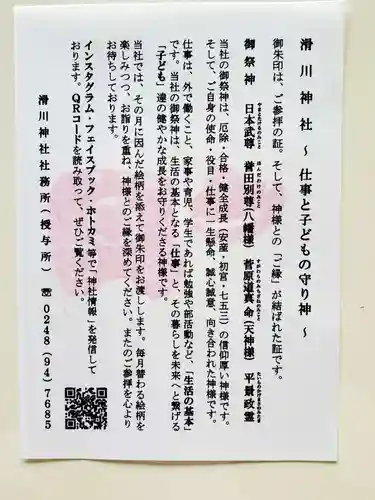 滑川神社 ~ 仕事と子どもの守り神 ~
御朱印は、ご参拝の証。そして、神様との「ご縁」が結ばれた証です。
御祭神 日本武尊 誉田別尊(八幡様) 菅原道真命(天神様) 平景政霊
やまとたけるのみこと ほんだわけのみこと すがわらのみちざねのみこと たいらのかげまさのみたま
当社の御祭神は、厄除・合格・健全成長(安産・初宮・七五三)の信仰厚い神様です。
そして、ご自身の使命・役目・仕事に一生懸命、誠心誠意、向き合われた神様です。
仕事は、外で働くこと、家事や育児、学生であれば勉強や部活動など、「生活の基本」
です。当社の御祭神は、生活の基本となる「仕事」と、その暮らしを未来へと繋げる
「子ども」達の健やかな成長をお守りくださる神様です。
当社では、その月に因んだ絵柄を添えて御朱印をお渡しします。毎月替わる絵柄を
楽しみつつ、お詣りを重ね、神様とのご縁を深めてください。またのご参拝を心より
お待ちしております。
インスタグラム・フェイスブック・ホトカミ等で「神社情報」を発信して
おります。QRコードを読み取って、ぜひご覧ください。
滑川神社社務所(授与所) ☏0248(94)7685